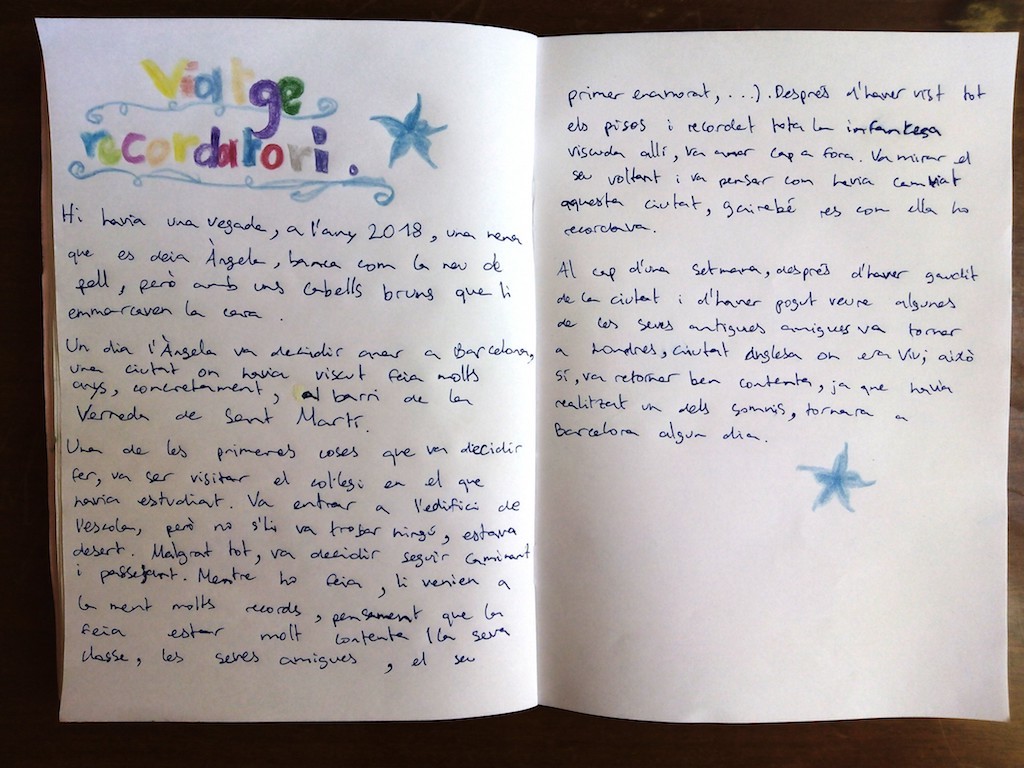 Viatge
recordatori.
Hi havia una vegada, a l'any 2018, una nena
que es deia Àngela, blanca com la neu de
pell, però amb uns cabells bruns que li
emmarcaven la cara.
Un dia l'Àngela va decidir anar a Barcelona,
una ciutat on havia viscut feia molts
anys, concretament, al barri de la
Verneda de Sant Martí.
Una de les primeres coses que va decidir
fer, va ser visitar el col·legi en el que
havia estudiat. Va entrar a l'edifici de
l'escola, però no s'hi va trobar ningú, estava
desert. Malgrat tot, va decidir seguir caminant
i passejant. Mentre ho feia, li venien a
la ment molts records, pensament que la
feia estar molt contenta (la seva
classe, les seves amigues, el seu
primer enamorat, ...). Després d'haver vist tot
els pisos i recordat tota la infantesa
viscuda allí, va anar cap a fora. Va mirar el
seu voltant i va pensar com havia cambiat
aquesta ciutat, gairebé res com ella ho
recordava.
Al cap d'una setmana, després d'haver gaudit
de la ciutat i d'haver pogut veure algunes
de les seves antigues amigues va tornar
a Londres, ciutat anglesa on era viu; això
sí, va retornar ben contenta, ja que havia
realitzat un dels somnis, tornara a
Barcelona algun dia.